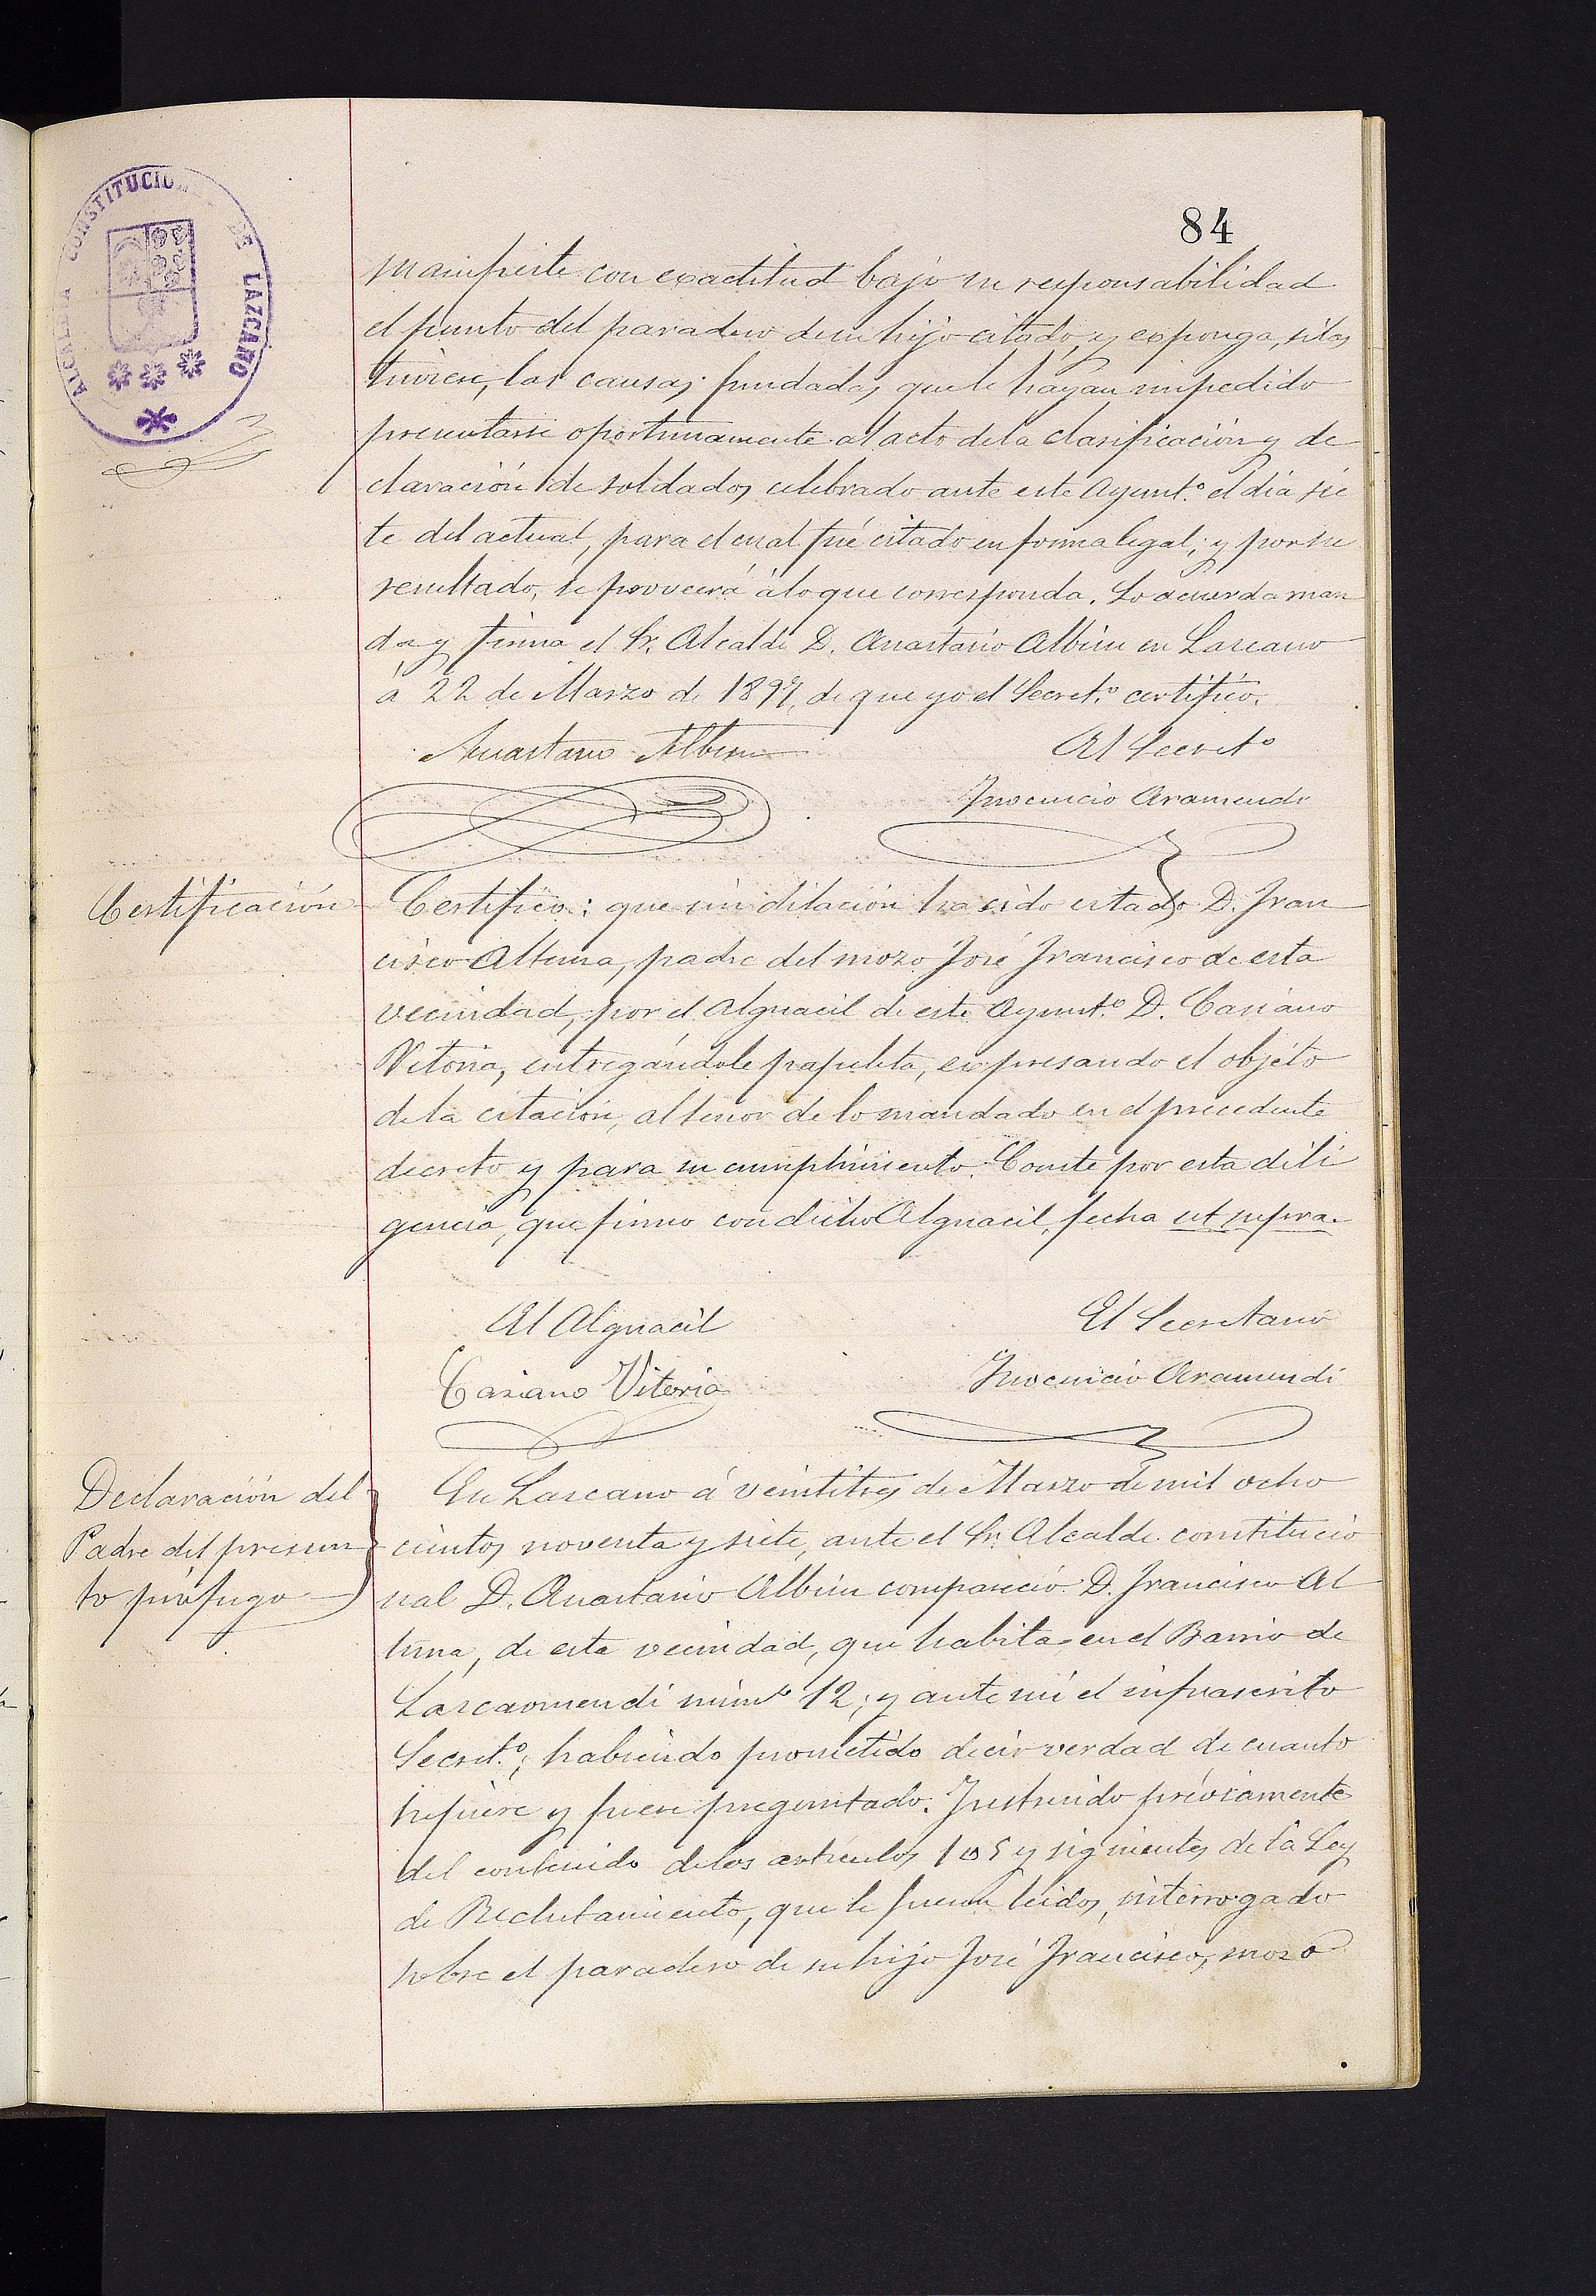 ALCALDIA CONSTITUCIO DE LAZCANO
84
manifieste con exactitud bajo su responsabilidad
el punto del paradero de su hijo citado, y esponga, si las
tuviere, las causas fundadas que le hayan impedido
presentarse oportunamente al acto de la clasificación y de
claración de soldados celebrado ante este Ayunt.º el dia sie
te del actual, para el cual fué citado en forma legal; y por su
resultado, se proveerá á lo que corresponda. Lo acuerda man
da y firma el Sr. Alcalde D. Anastasio Albisu en Lazcano
á 22 de Marzo de 1897, de que yo el Secret.º certifico.
Anastasio Albisu
El Secretº
Inocencio Aramendi
Certificación
Certifico: que sin dilación ha sido citado D. Fran
cisco Altuna, padre del mozo José Francisco de esta
vecindad, por el Alguacil de este Ayunt.º D. Casiano
Vitoria, entregándole papeleta, expresando el objeto
de la citación, al tenor de lo mandado en el precedente
decreto y para su cumplimiento. Conste por esta dili
gencia, que firmo con dicho Alguacil, fecha ut supra.
El Alguacil
El Secretario
Casiano Vitoria
Inocencio Aramendi
Declaración del
Padre del presun
to prófugo
En Lazcano á veintitres de Marzo de mil ocho
cientos noventa y siete, ante el Sr. Alcalde constitucio
nal D. Anastasio Albisu compareció D. Francisco Al
tuna, de esta vecindad, que habita en el Barrio de
Lazcaomendi númº 12; y ante mí el infrascrito
Secret.º; habiendo prometido decir verdad de cuanto
supiere y fuere preguntado. Instruido préviamente
del contenido de los artículos 105 y siguientes de la Ley
de Reclutamiento, que le fueron leidos, interrogado
sobre el paradero de su hijo José Francisco, mozo